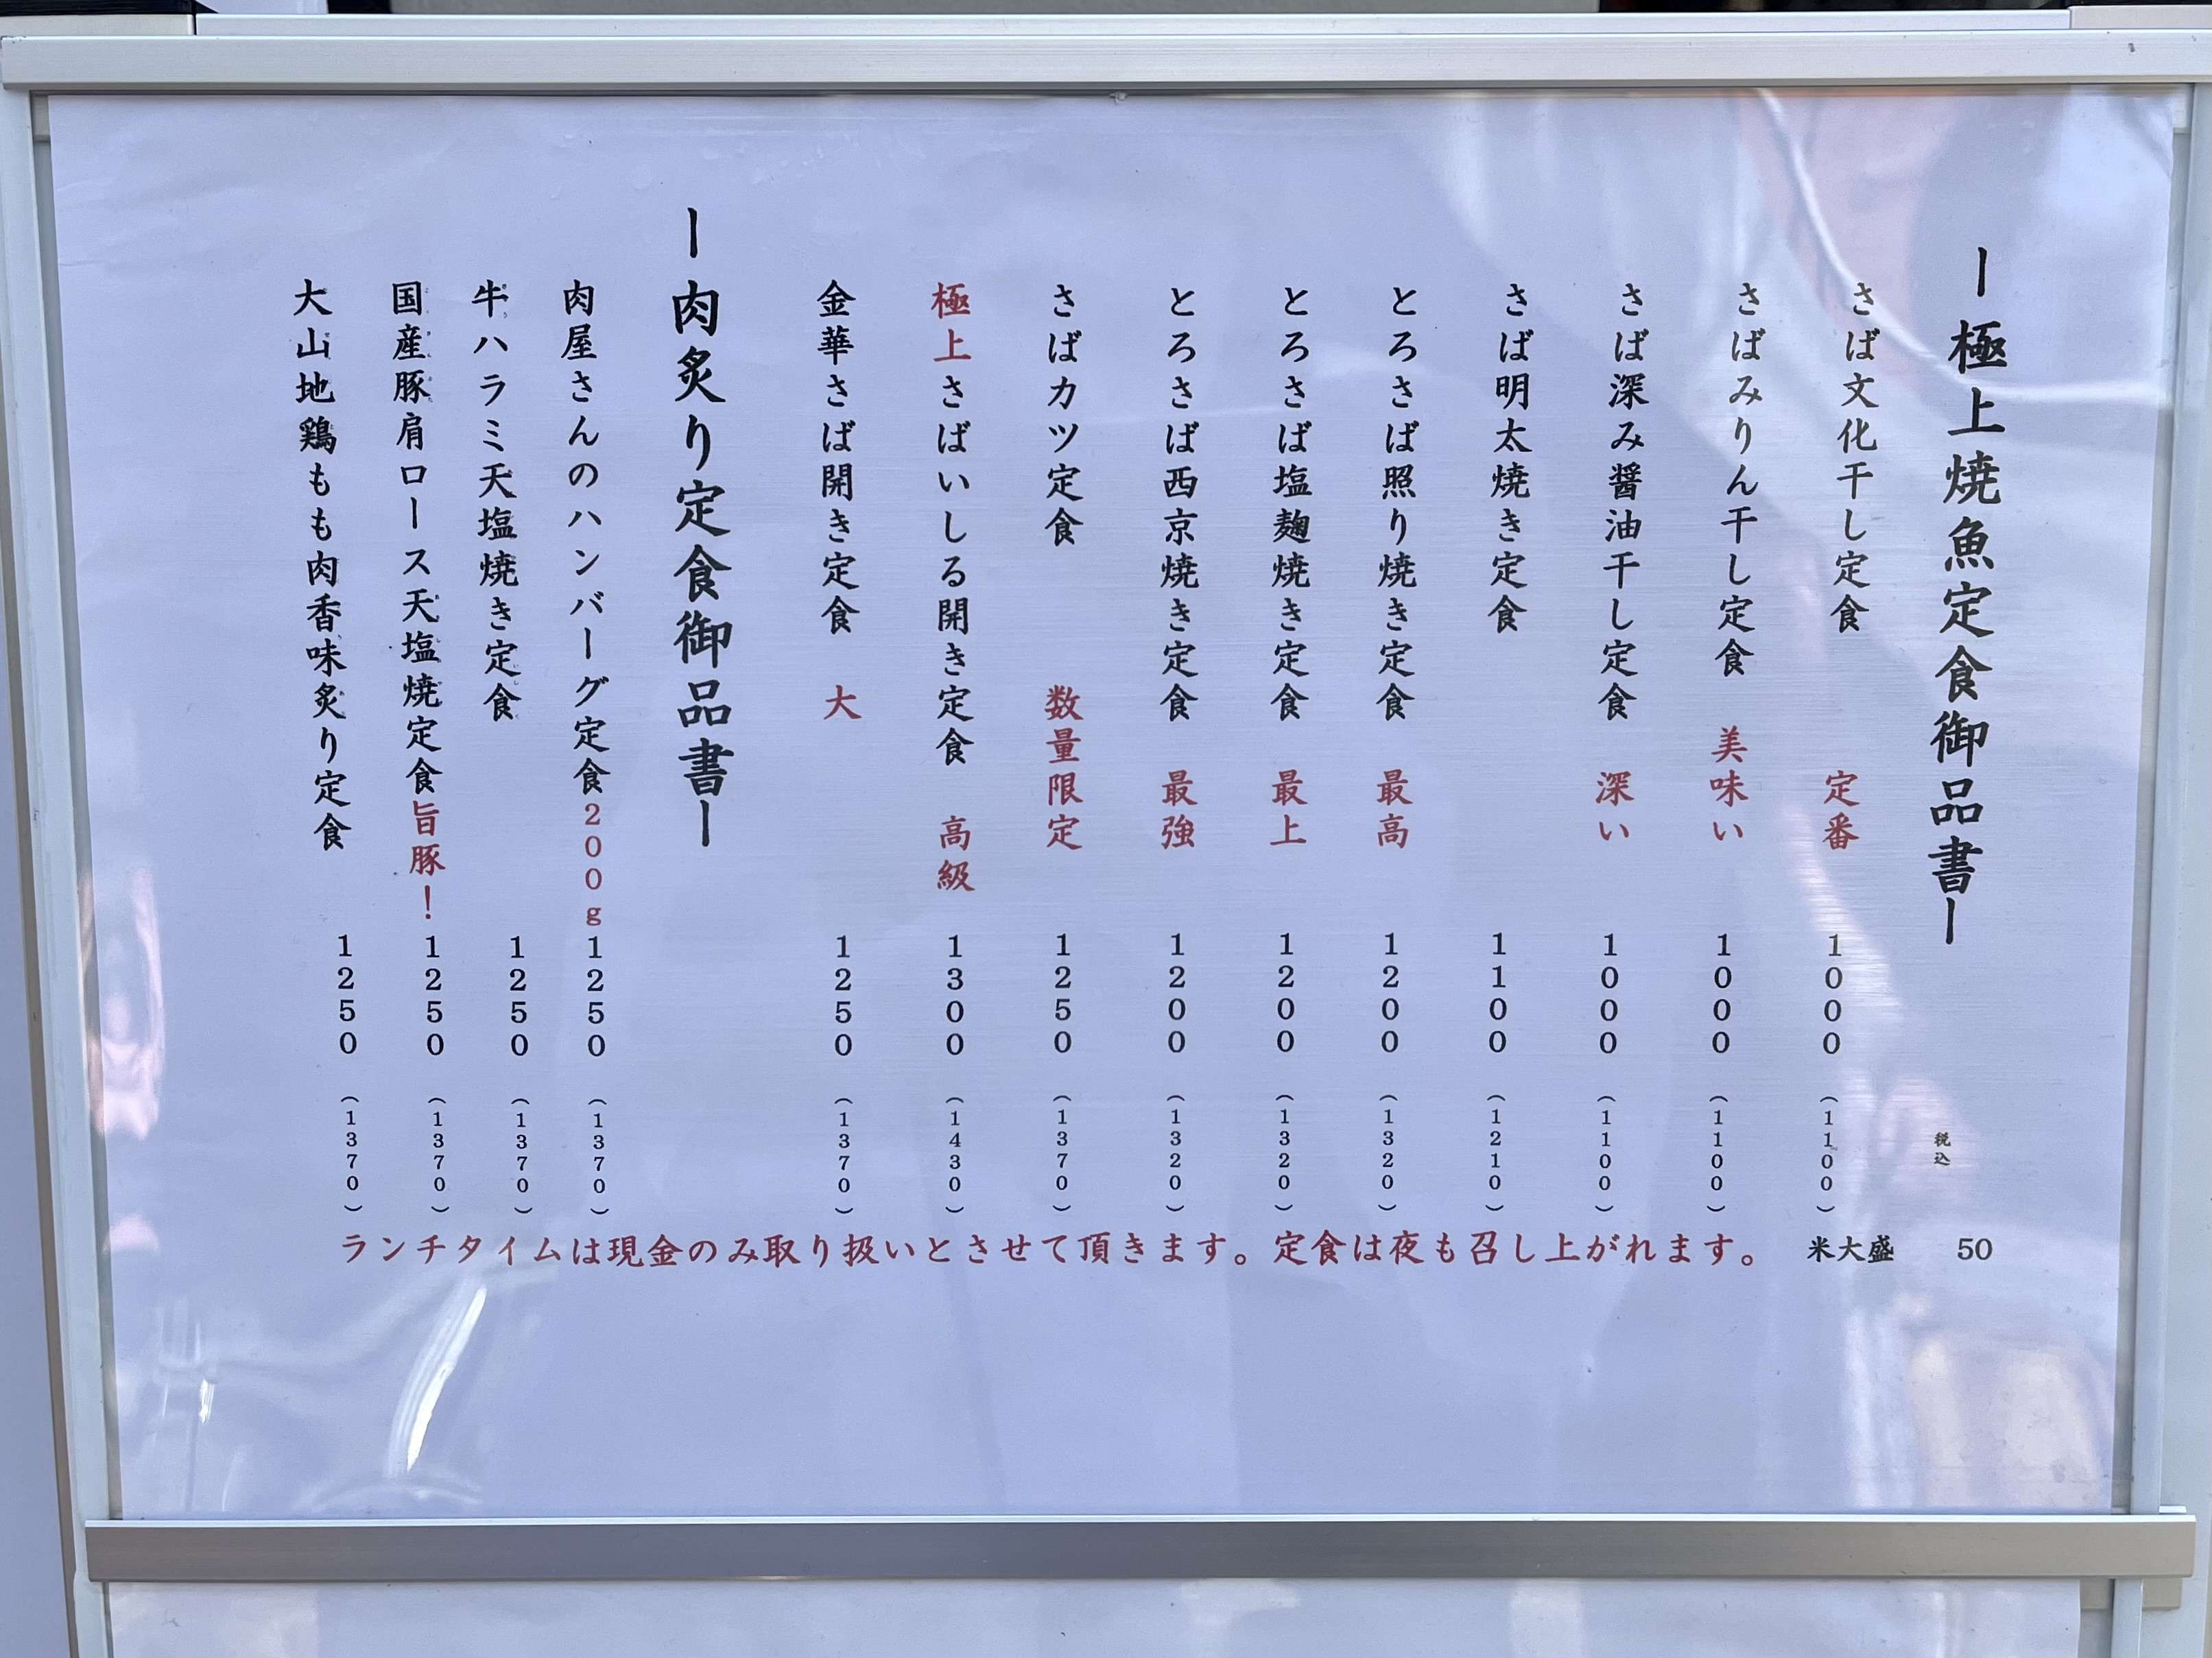 ー極上焼魚定食御品書ー
税込
さば文化干し定食 定番 1000 (1100)
さばみりん干し定食 美味い 1000 (1100)
さば深み醤油干し定食 深い 1000 (1100)
さば明太焼き定食 1100 (1210)
とろさば照り焼き定食 最高 1200 (1320)
とろさば塩麹焼き定食 最上 1200 (1320)
とろさば西京焼き定食 最強 1200 (1320)
さばカツ定食 数量限定 1250 (1370)
極上さばいしる開き定食 高級 1300 (1430)
金華さば開き定食 大 1250 (1370)
ー肉炙り定食御品書ー
肉屋さんのハンバーグ定食200g 1250 (1370)
牛ハラミ天塩焼き定食 1250 (1370)
国産豚肩ロース天塩焼定食旨豚！ 1250 (1370)
大山地鶏もも肉香味炙り定食 1250 (1370)
ランチタイムは現金のみ取り扱いとさせて頂きます。定食は夜も召し上がれます。 米大盛 50